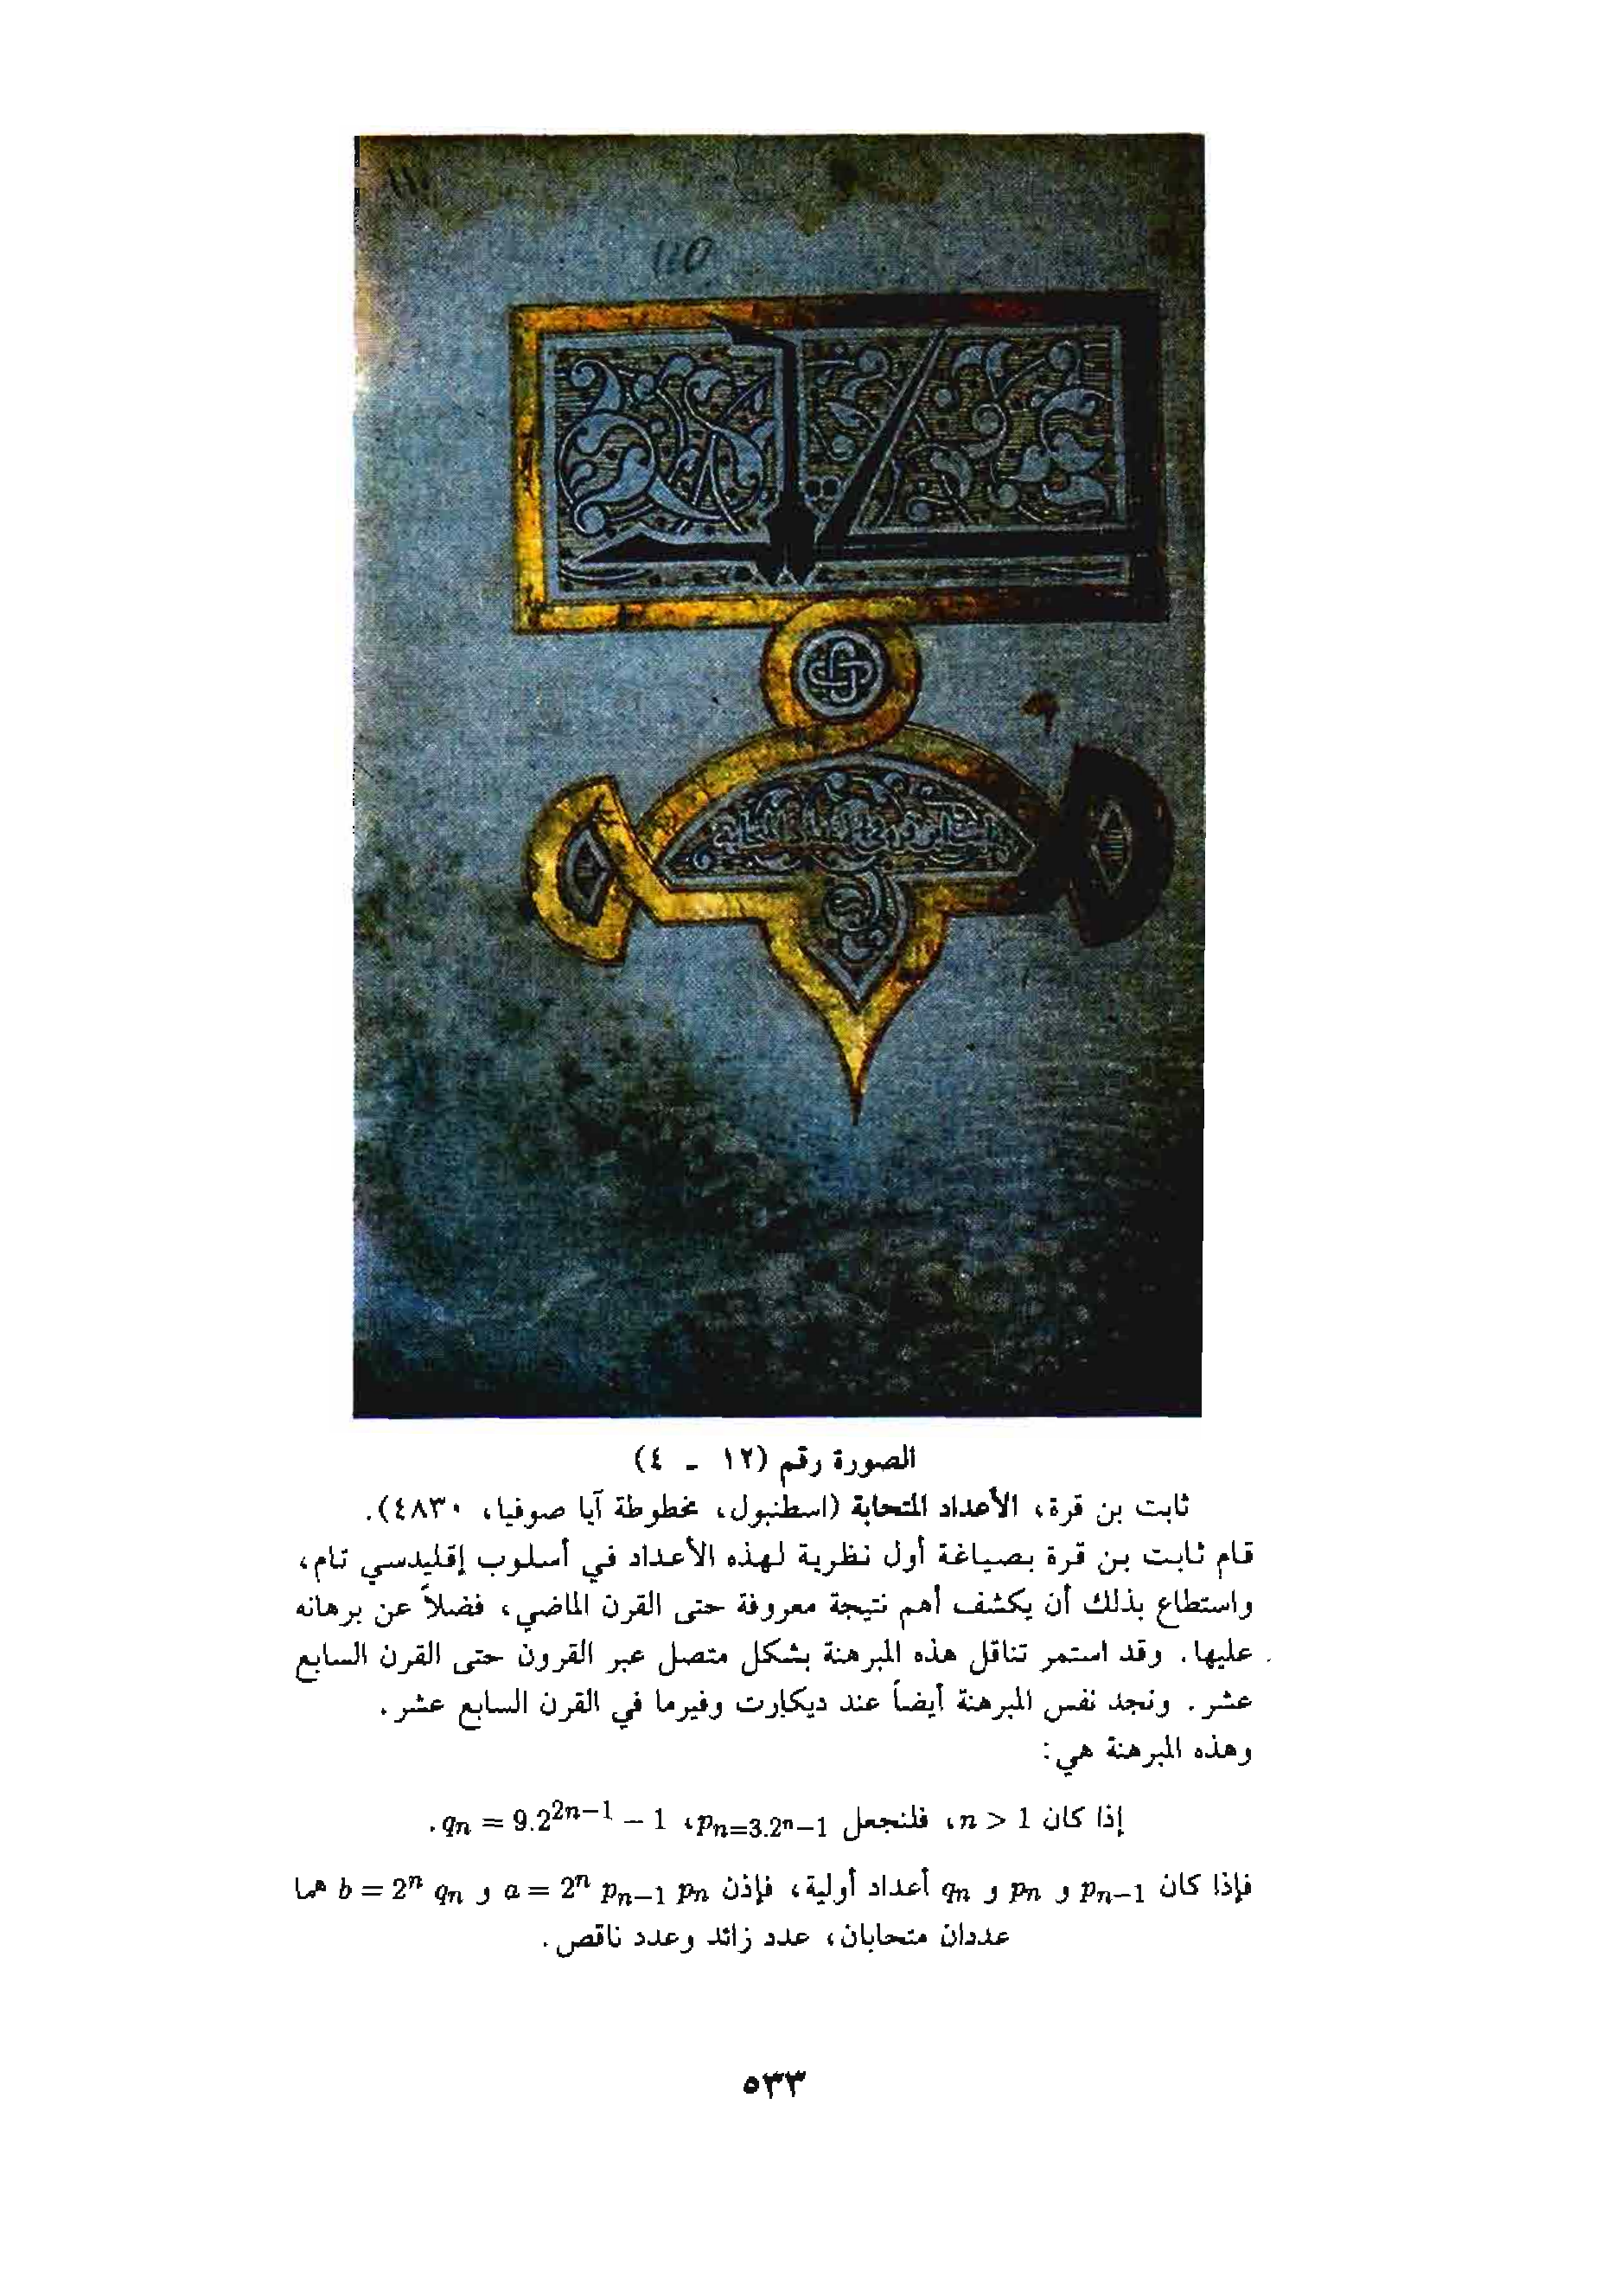 110
الصورة رقم (١٢ - ٤)
ثابت بن قرة، الأعداد المتحابة (اسطنبول، مخطوطة آيا صوفيا، ٤٨٣٠).
قام ثابت بن قرة بصياغة أول نظرية لهذه الأعداد في أسلوب إقليدسي تام،
واستطاع بذلك أن يكشف أهم نتيجة معروفة حتى القرن الماضي، فضلاً عن برهانه
عليها. وقد استمر تناقل هذه المبرهنة بشكل متصل عبر القرون حتى القرن السابع
عشر. ونجد نفس المبرهنة أيضاً عند ديكارت وفيرما في القرن السابع عشر.
وهذه المبرهنة هي:
إذا كان n > 1، فلنجعل pₙ₌₃.₂ⁿ₋₁، qₙ = 9.2²ⁿ⁻¹ − 1.
فإذا كان pₙ₋₁ و pₙ و qₙ أعداد أولية، فإذن a = 2ⁿ pₙ₋₁ pₙ و b = 2ⁿ qₙ هما
عددان متحابان، عدد زائد وعدد ناقص.
٥٣٣